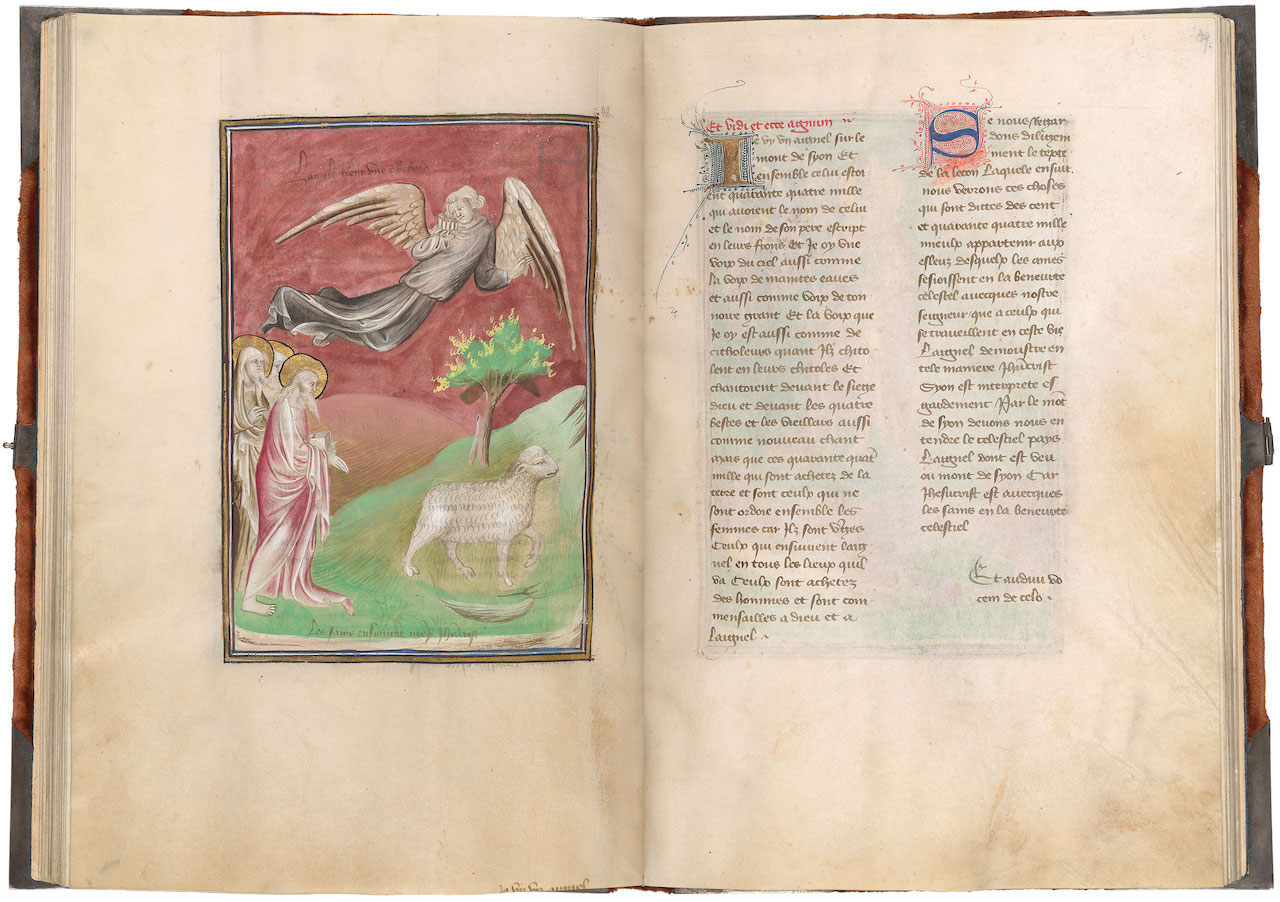 Et vidi et ecce agnum
Je vy vn aignel sur le
mont de syon Et
ensemble celui estoi
ent quarante quatre mille
qui auoient le nom de celui
et le nom de son pere escript
en leurs frons Et Je oy vne
voix du ciel aussi comme
la voix de maintes eaues
et aussi comme voix de ton
noire grant Et la voix que
Je oy est aussi comme de
citholeurs quant Ilz chito
lent en leurs chitoles Et
chantoient deuant le siege
dieu et deuant les quatre
bestes et les vieillars aussi
comme nouueau chant
mais que ces quarante quatre
mille qui sont achetez de la
terre et sont ceulx qui ne
sont ordoie ensemble les
femmes car Ilz sont vierges
Ceulx qui ensuiuent laig
nel en tous les lieux quil
va Ceulx sont achetez
des hommes et sont com
mensailles a dieu et a
laignel
Se nous regar
dons diligem
ment le texte
de la lecon laquele ensuit
nous verrons ces choses
qui sont dittes des cent
et quarante quatre mille
mieulx appartenir aux
esleuz desquelx les ames
sesioissent en la beneurte
celestel auecques nostre
seigneur que a ceulx qui
se traueillent en ceste vie
Laignel demoustre en
tele maniere Jhesucrist
Syon est interprete es
gardement Par le mont
de syon deuons nous en
tendre le celestiel pays
Laignel dont est veu
ou mont de syon Car
Jhesucrist est auecques
les sains en la beneurte
celestiel
Et audiui vo
cem de celo
Les sains ensuiuent